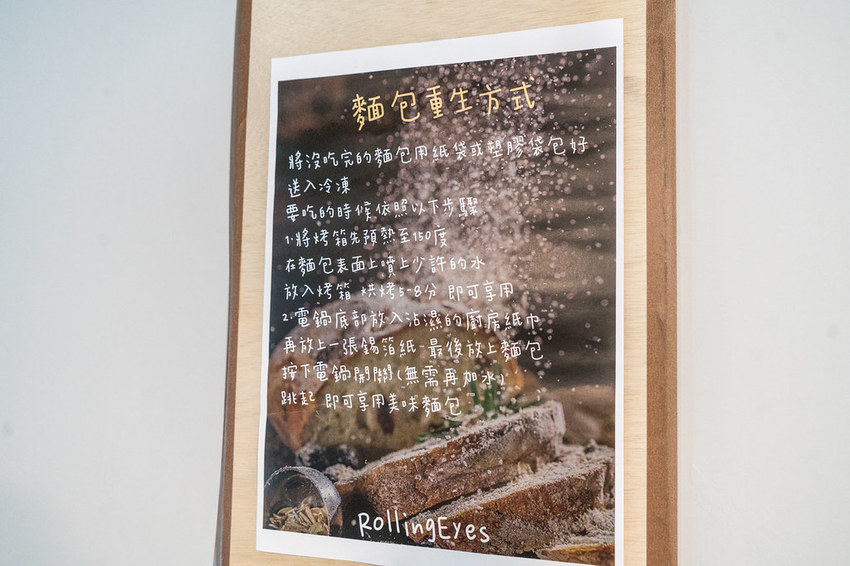 麵包重生方式
將沒吃完的麵包用紙袋或塑膠袋包好
送入冷凍
要吃的時候依照以下步驟
1.將烤箱先預熱至150度
在麵包表面上噴上少許的水
放入烤箱 烘烤5-8分 即可享用
2.電鍋底部放入沾濕的廚房紙巾
再放上一張錫箔紙 最後放上麵包
按下電鍋開關(無需再加水)
跳起 即可享用美味麵包
RollingEyes